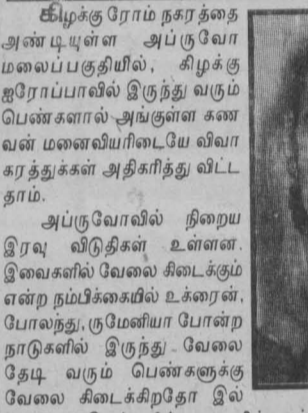 கிழக்கு ரோம் நகரத்தை
அண்டியுள்ள அப்ருவோ
மலைப்பகுதியில், கிழக்கு
ஐரோப்பாவில் இருந்து வரும்
பெண்களால் அங்குள்ள கண
வன் மனைவியரிடையே விவா
கரத்துக்கள் அதிகரித்து விட்ட
தாம்.
அப்ருவோவில் நிறைய
இரவு விடுதிகள் உள்ளன.
இவைகளில் வேலை கிடைக்கும்
என்ற நம்பிக்கையில் உக்ரைன்,
போலந்து, ருமேனியா போன்ற
நாடுகளில் இருந்து வேலை
தேடி வரும் பெண்களுக்கு
வேலை கிடைக்கிறதோ இல்